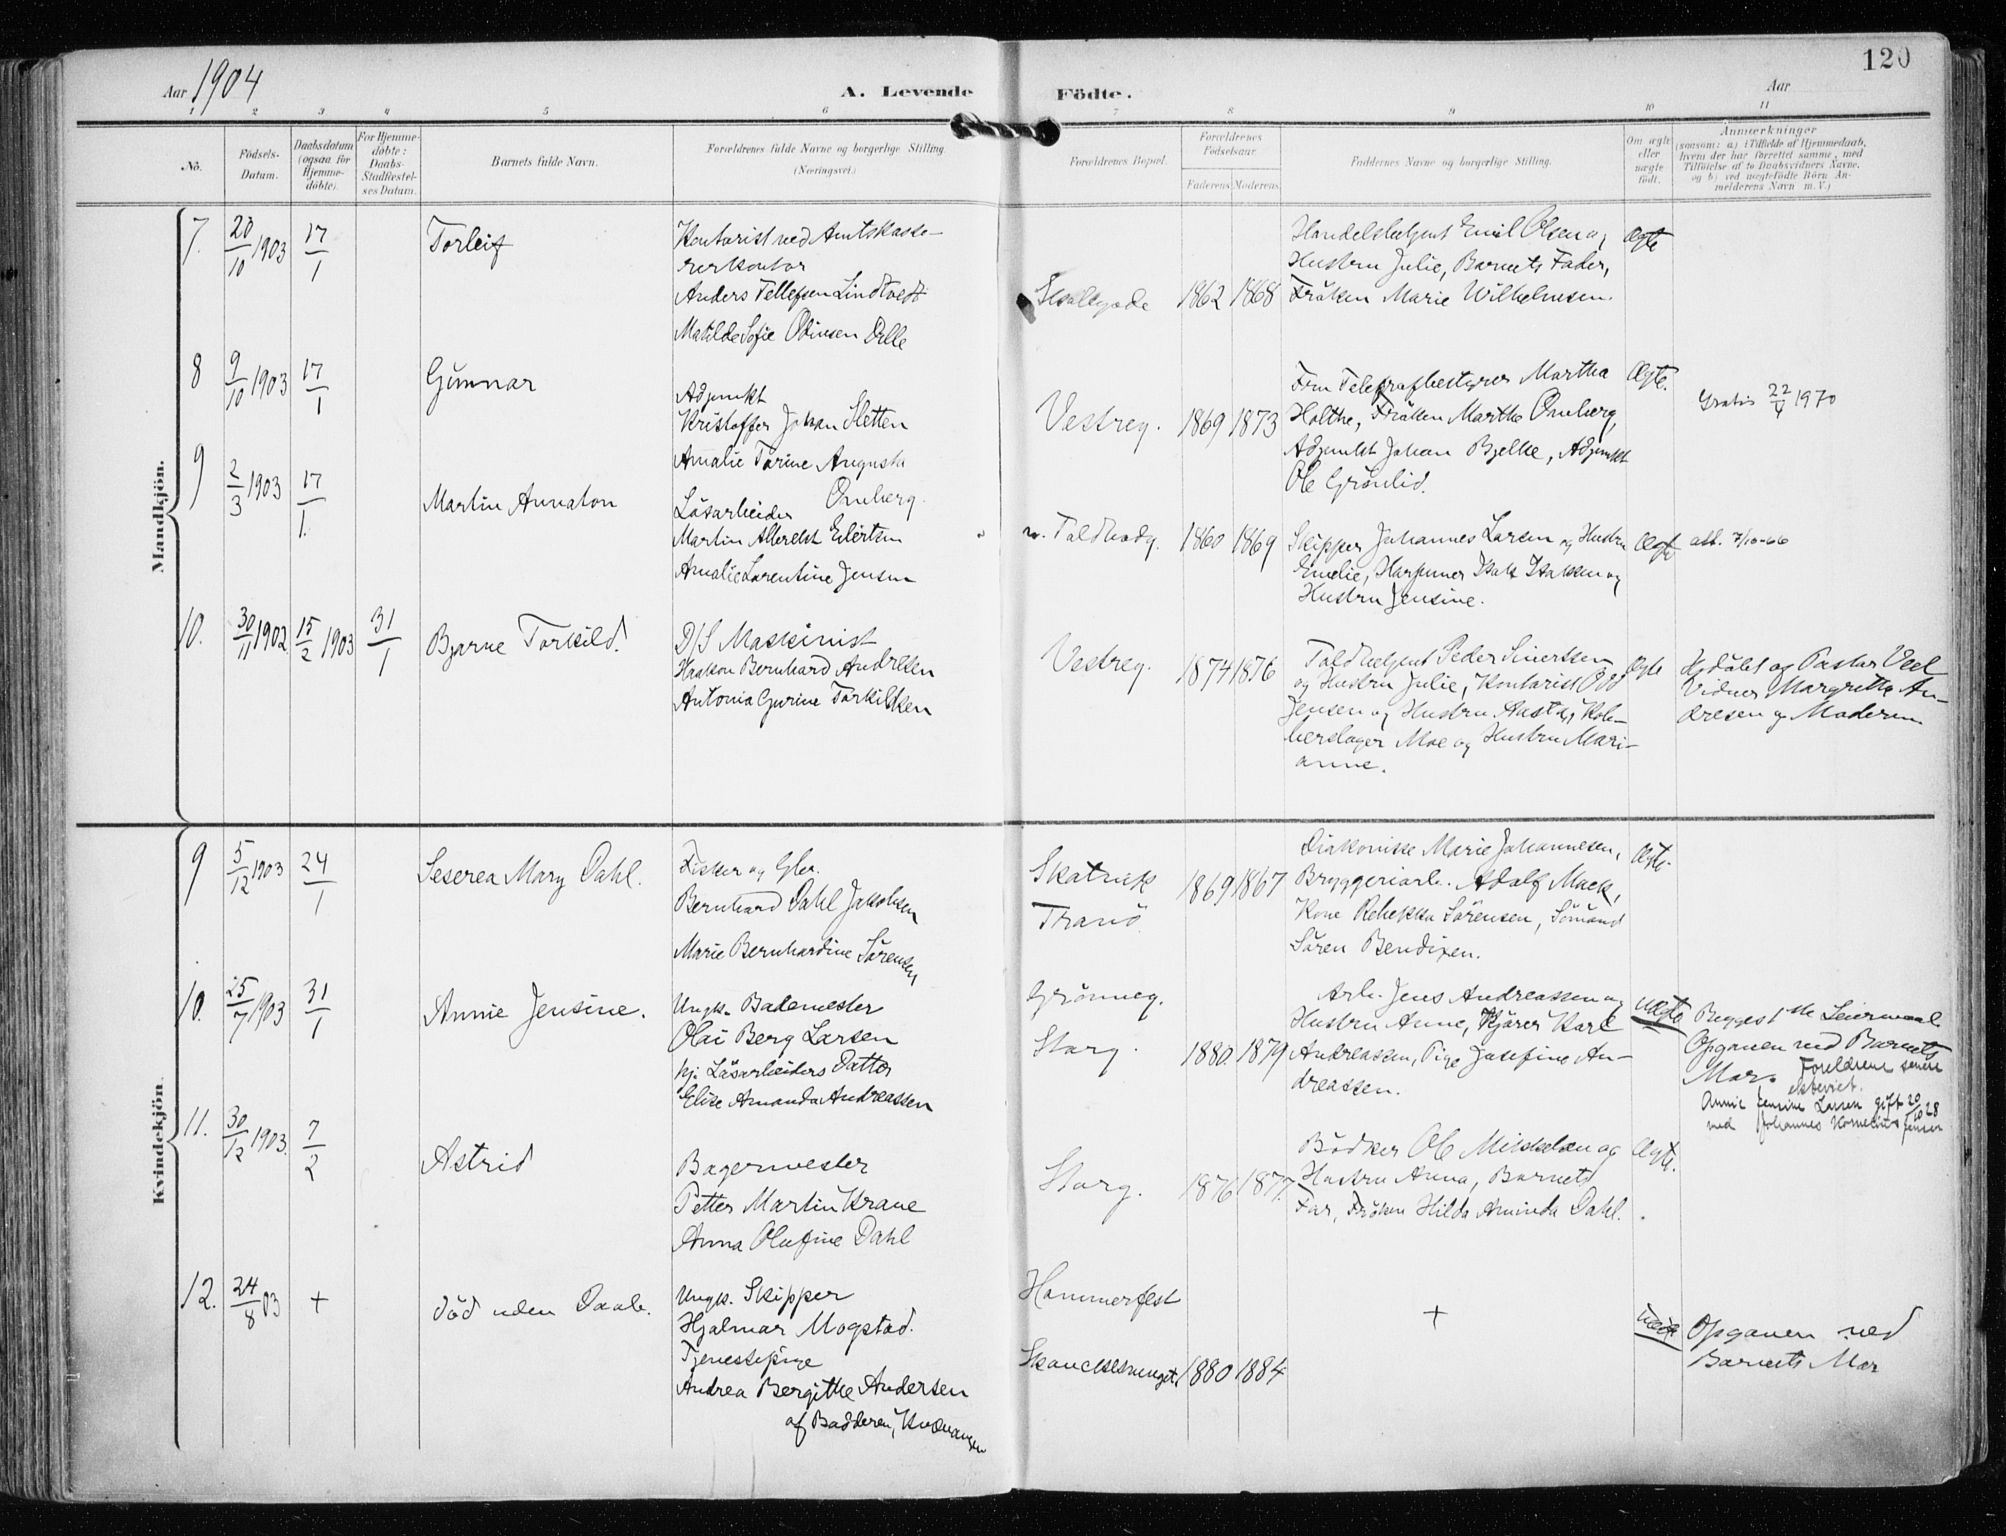 120
Aar 1904
A. Levende Födte.
Aar
1 2 3 4 5 6 7 8 9 10 11
No.
Födsels-Datum.
Daabsdatum (ogsaa for Hjemme-döbte).
For Hjemme-döbte: Daabs-Stadfæstel-ses Datum.
Barnets fulde Navn.
Forældrenes fulde Navne og borgerlige Stilling.
(Næringsvei.)
Forældrenes Bopæl.
Forældrenes Födselsaar.
Faderens Moderens
Faddernes Navne og borgerlige Stilling.
Om ægte eller uægte födt.
Anmærkninger
(saasom: a) i Tilfælde af Hjemmedaab,
hvem der har forrettet samme, med
Tilföielse af to Daabsvidners Navne.
og b) ved uægtefödte Börn An-
melderens Navn m. V.)
Mandkjön.
7. 20/10 1903 17/1 Torleif
Kontorist ved Amtskasse-
rerkontor
Anders Tellefsen Lindtvedt
Matilde Sofie Odinsen Dille
Skolegade 1862 1868
Handelsbetjent Emil Olsen og
Hustru Julie, Barnets Fader,
Fröken Marie Wilhelmsen.
Ægte
8 9/10 1903 17/1 Gunnar
Adjunkt
Kristoffer Johan Sletten
Amalie Torine Augusta
Omberg.
Vestreg. 1869 1873
Fru Telegrafbestyrer Martha
Holthe, Fröken Marthe Omberg,
Adjunkt Johan Bjelke, Adjunkt
Ole Grönlid.
Ægte.
Gratis 22/4 1970
9 2/3 1903 17/1. Martin Annaton
Läsarbeider
Martin Albrekt Eilertsen
Amalie Lorentine Jensen
n. Toldbodg. 1860 1869
Skipper Johannes Larsen og Hustru
Emelie, Harpuner Isak Isaksen og
Hustru Jensine.
Ægte
att. 7/10-66
10. 30/11 1902 15/2 1903 31/1 Bjarne Torkild.
D/S Maskinist
Haakon Bernhard Andresen
Antonia Gurine Torkildsen
Vestreg. 1874 1876
Toldbetjent Peder Sivertsen
og Hustru Julie, Kontorist Odd
Jensen og Hustru Aasta, Kob-
berslager Moe og Hustru Mari-
anne.
Ægte
Hjdöbt af Pastor Veel
Vidner Margrethe An-
dresen og Moderen
Kvindekjön.
9 5/12 1903 24/1 Seserea Mary Dahl.
Fisker og Gbr.
Bernhard Dahl Jakobsen
Marie Bernhardine Sörensen
Skatvik
Tranö. 1869 1867
Diakonisse Marie Johannesen,
Bryggeriarb. Adolf Mack,
Kone Rebekka Sörensen, Sömand
Sören Bendixen.
Ægte.
10. 25/7 1903 31/1 Annie Jensine.
Ungk. Bademester
Olai Berg Larsen
hj. Läsarbeiders Datter
Elise Amanda Andreassen
Grönneg.
Storg. 1880. 1879
Arb. Jens Andreassen og
Hustru Anne, Kjører Karl
Andreassen, Pige Josefine An-
dreassen.
uægte
Begges 1ste Leiermaal
Opgaven ved Barnets
Mor. Foreldrene senere
ekteviet.
Annie Jensine Larsen gift 20/10 28
med Johannes Kornelius Jensen
11. 30/12 1903. 7/2 Astrid
Bagermester
Petter Martin Krane
Anna Olufine Dahl
Storg. 1876 1877.
Bödker Ole Mikkelsen og
Hustru Anna, Barnets
Far, Fröken Hilda Aminda Dahl.
Ægte.
12. 24/8 03 + död uden Daab.
Ungk. Skipper
Hjalmar Mogstad.
Tjenestepige
Andrea Bergitte Andersen
af Badderen, Kvænangen
Hammerfest
1880 1884
+
uægte
Opgaven ved
Barnets Mor